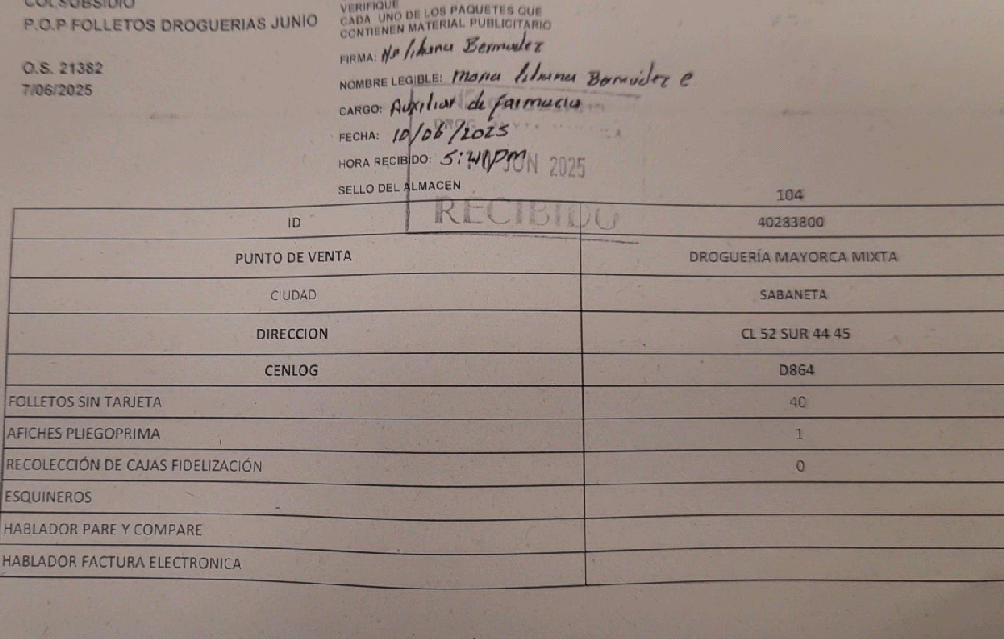 COLSUBSIDIO
P.O.P FOLLETOS DROGUERIAS JUNIO
O.S. 21382
7/06/2025
VERIFIQUE
CADA UNO DE LOS PAQUETES QUE
CONTIENEN MATERIAL PUBLICITARIO
FIRMA: Ma Liliana Bermudez
NOMBRE LEGIBLE: Maria Liliana Bermudez C
CARGO: Auxiliar de farmacia
FECHA: 10/06/2025
HORA RECIBIDO: 5:41PM
JUN 2025
SELLO DEL ALMACEN
RECIBIDO
104
ID 40283800
PUNTO DE VENTA DROGUERÍA MAYORCA MIXTA
CIUDAD SABANETA
DIRECCION CL 52 SUR 44 45
CENLOG D864
FOLLETOS SIN TARJETA 40
AFICHES PLIEGOPRIMA 1
RECOLECCIÓN DE CAJAS FIDELIZACIÓN 0
ESQUINEROS
HABLADOR PARE Y COMPARE
HABLADOR FACTURA ELECTRONICA